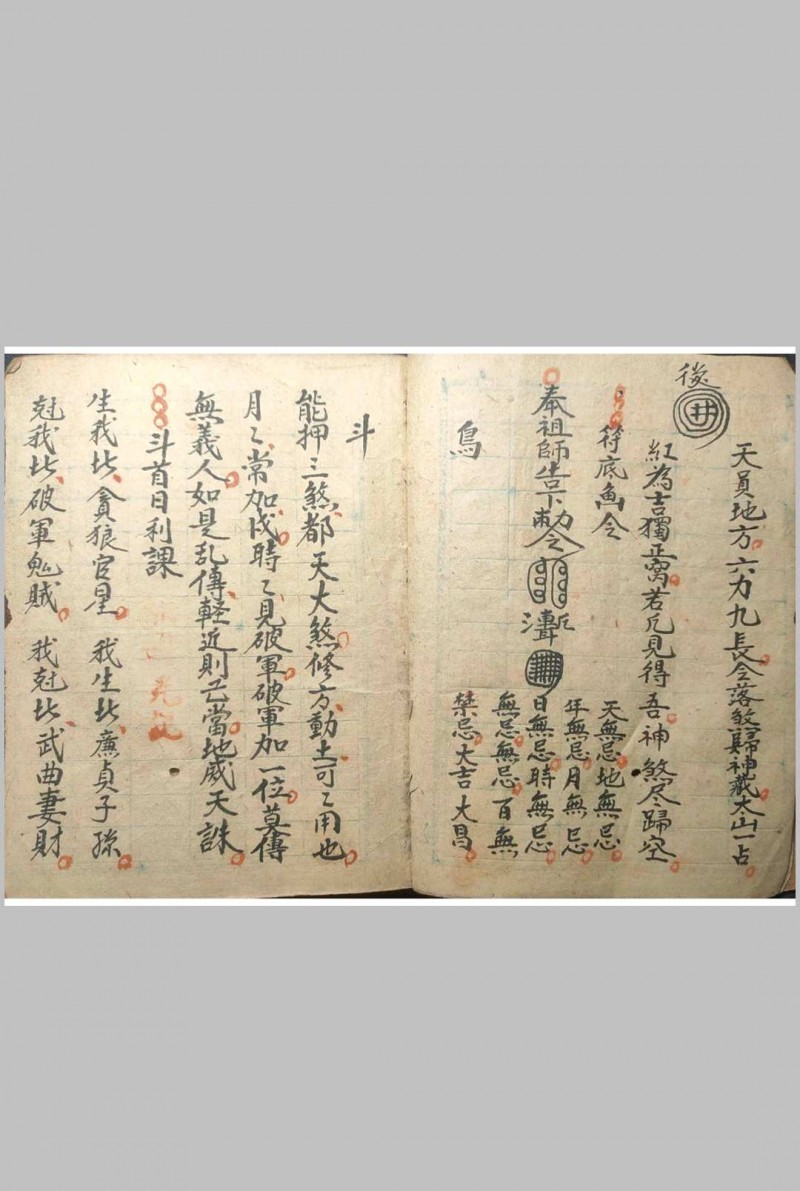 天員地方六力九長今落煞歸神藏太山一占
後
井
紅為吉獨正窩若凡見得吾神煞尽歸空
符底畫令
天無忌地無忌
年無忌月無忌
奉祖師告下勅令
日無忌時無忌
無忌無忌百無
鳥
禁忌大吉大昌
斗
能押三煞都天大煞修方動土可〻用也
月〻常加戌時〻見破軍破軍加一位莫傳
無義人如是乱傳輕近則己當地烕天誅
斗首日利課
生我比貪狼官星 我生比廉貞子孫
尅我比破軍鬼賊 我尅比武曲妻財